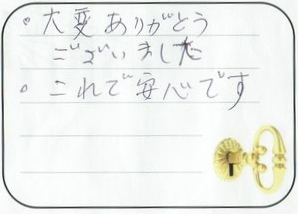 。大変ありがとう
ございました
。これで安心です